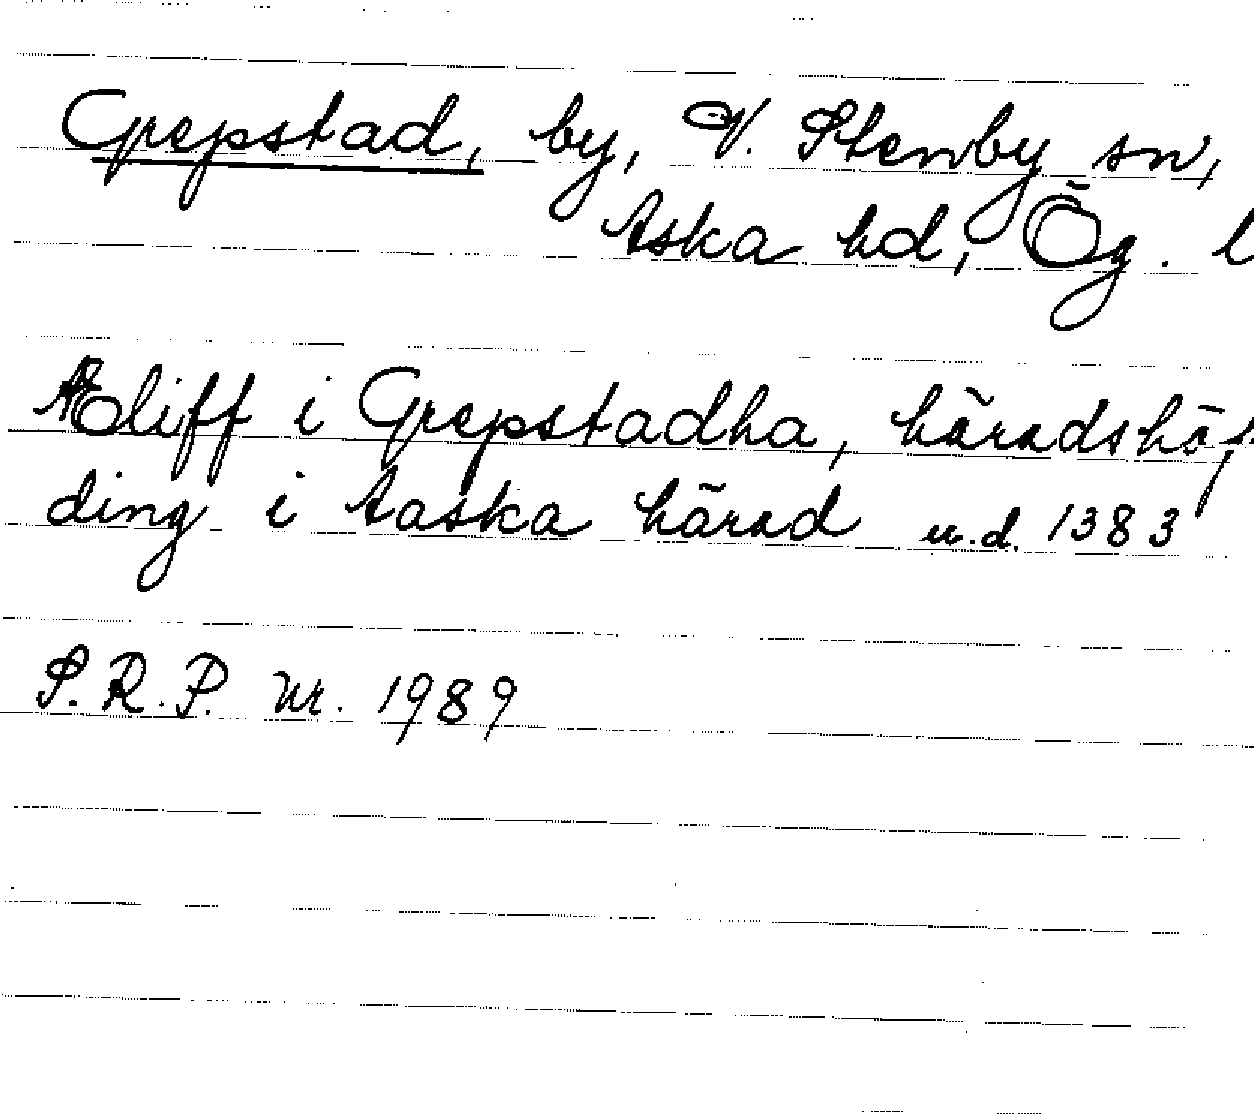 Grepstad, by, V. Stenby sn,
Aska hd, Ög. l
Æliff i Grepstadha, häradshöf
ding i Aaska härad u.d. 1383
S.R.P. nr. 1989